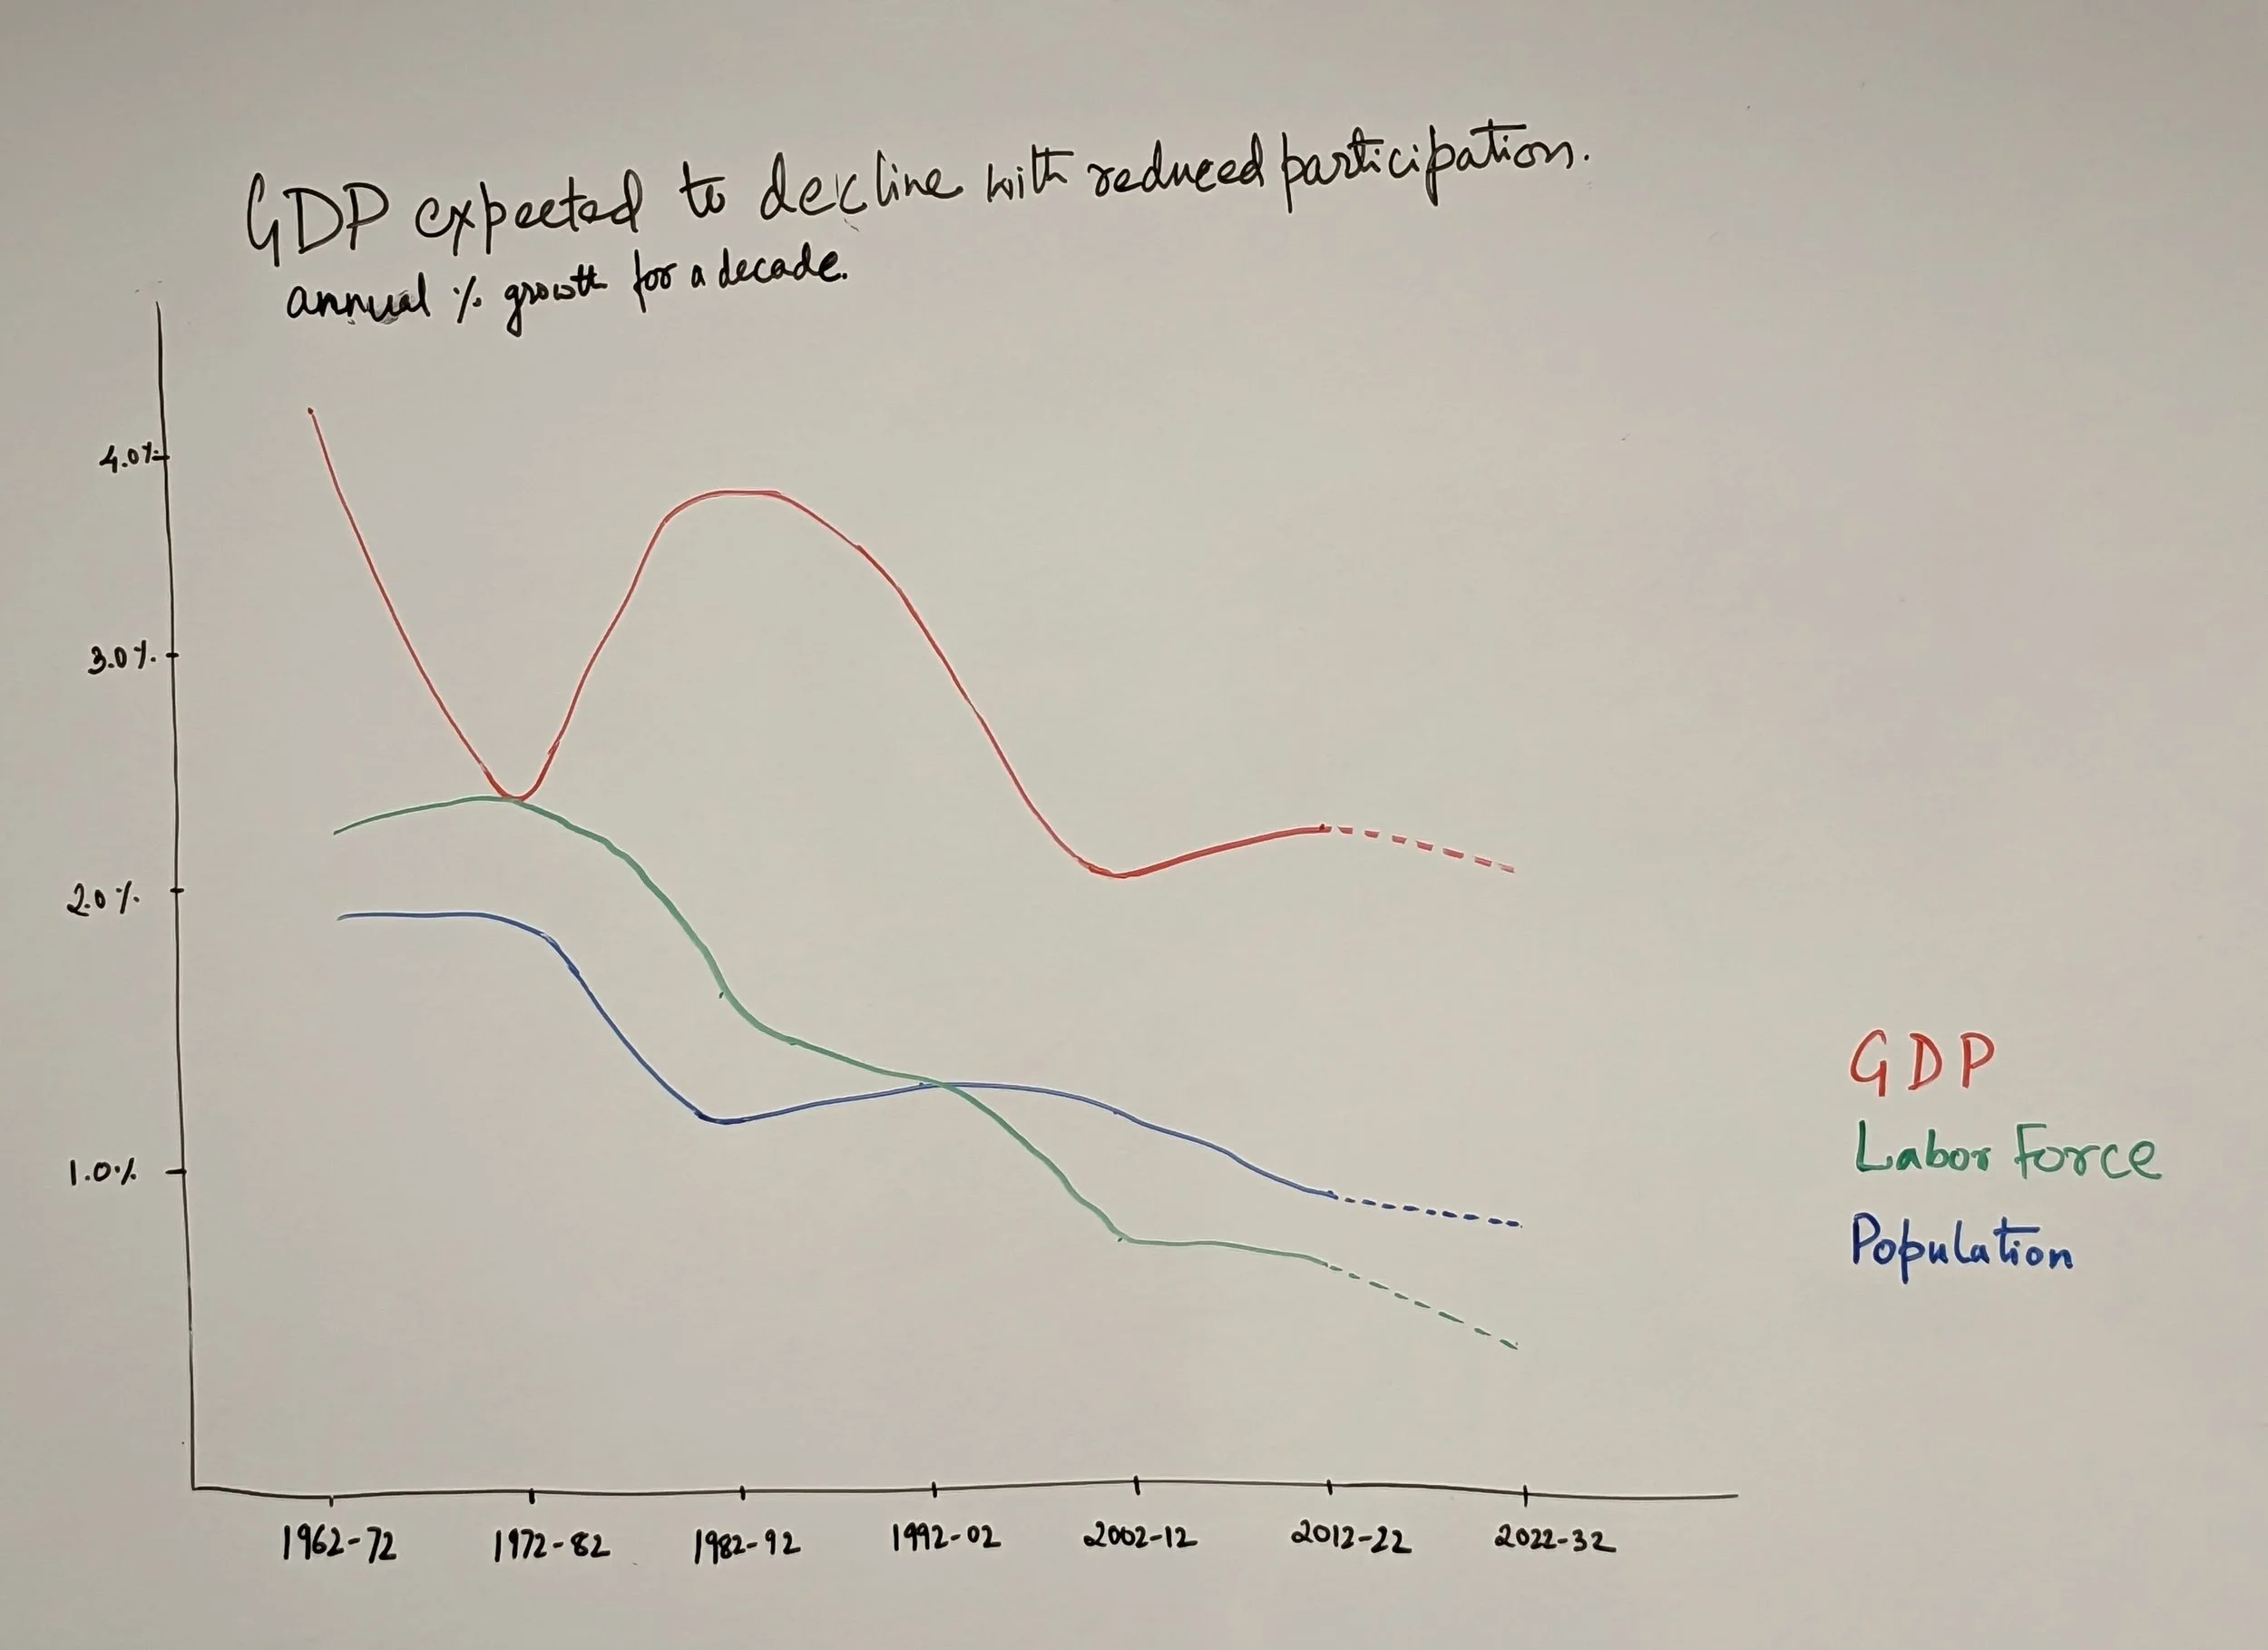 GDP expected to decline with reduced participation.
annual % growth for a decade.
4.0%
3.0%
2.0%
1.0%
GDP
Labor Force
Population
1962-72
1972-82
1982-92
1992-02
2002-12
2012-22
2022-32